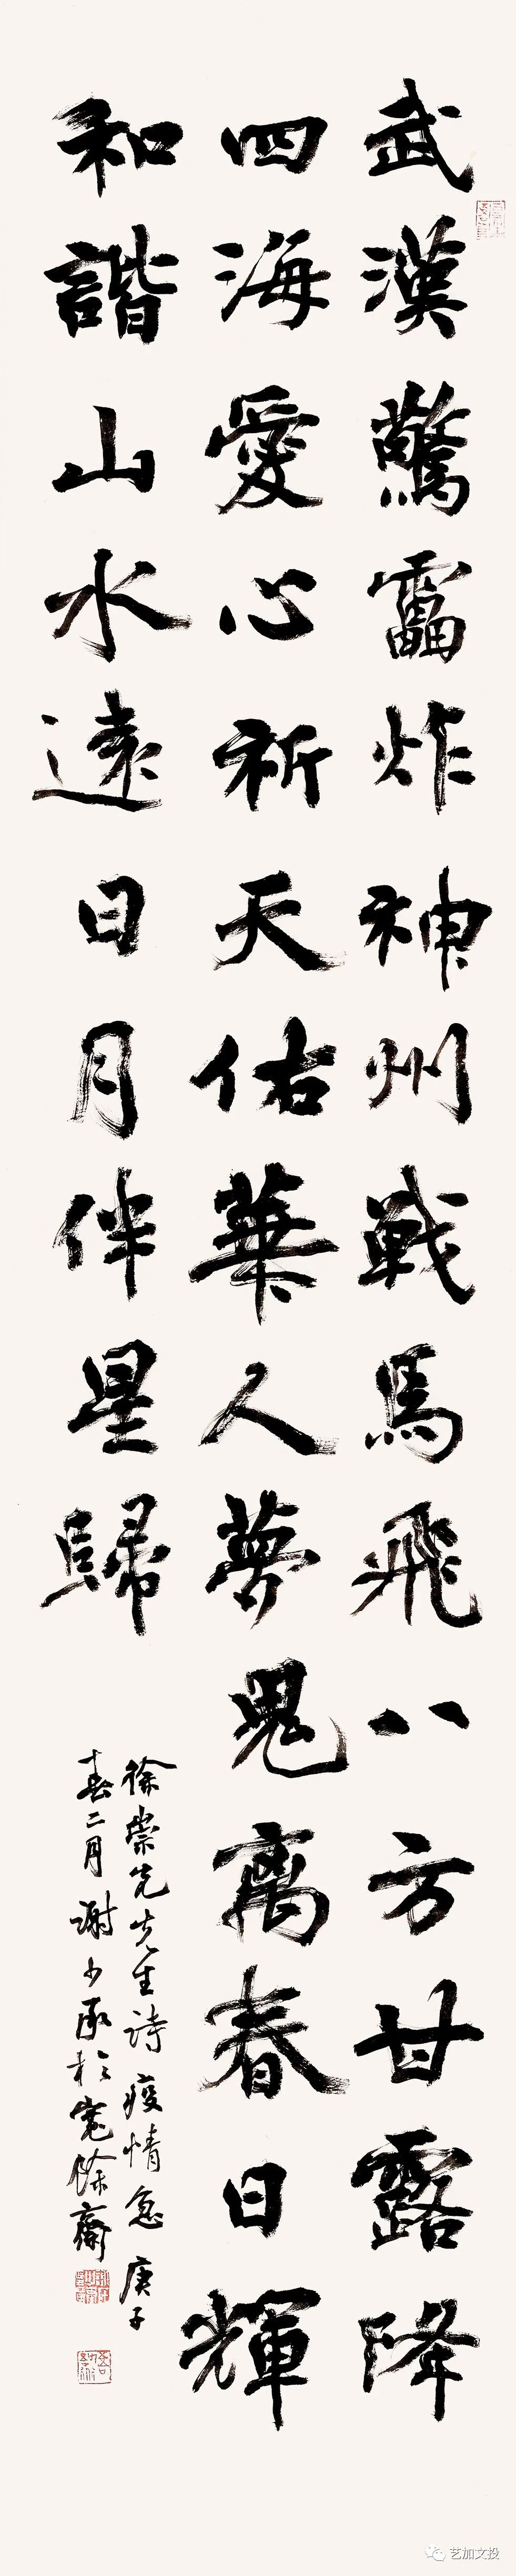 武漢驚靁炸神州戰馬飛八方甘露降
四海愛心祈天佑華人夢鬼離春日輝
和諧山水遠日月伴星歸
徐崇先先生詩疫情急庚子
春二月謝少承於寬餘齋
艺加文投